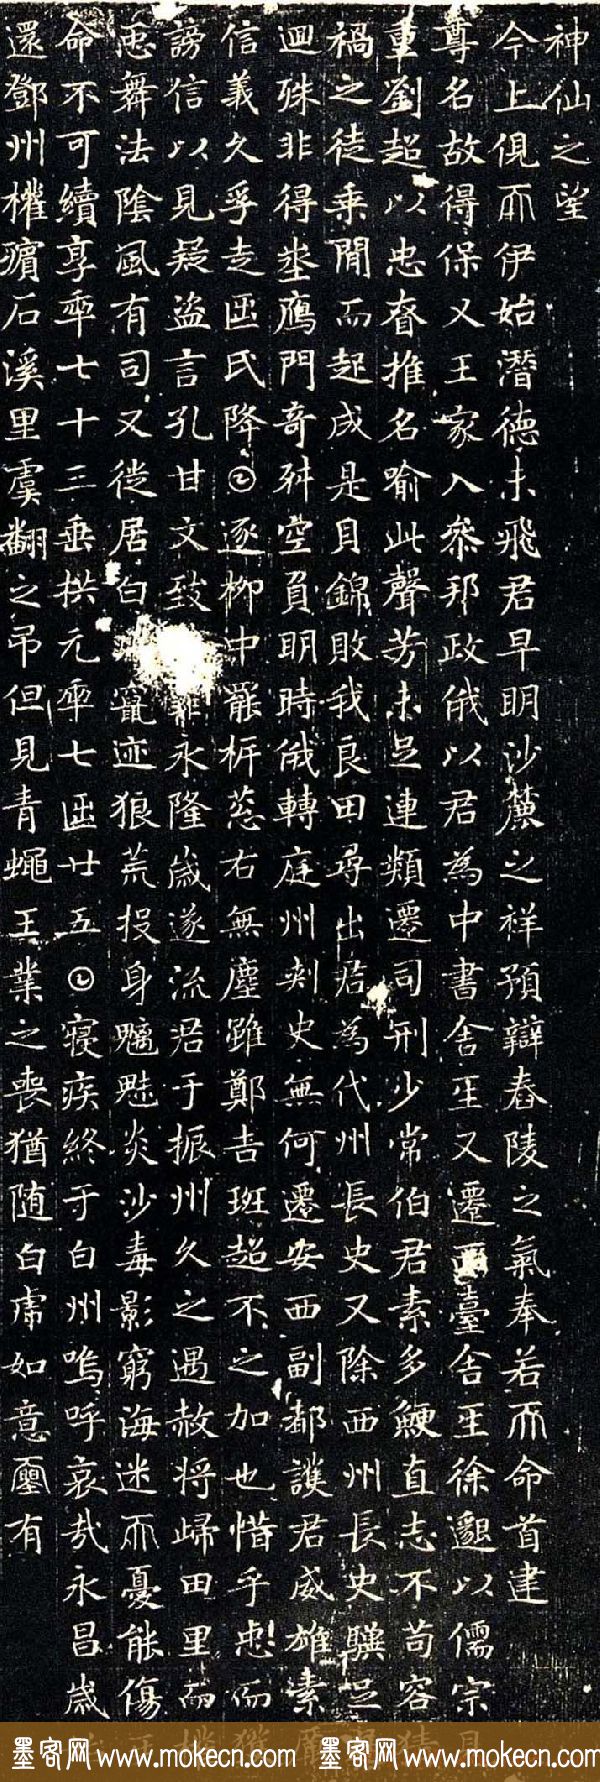 神仙之望
今上俔天伊始潛德未飛君早明沙麓之祥預辯舂陵之氣奉若天命首建
尊名故得保乂王家入叅邦政俄以君為中書舍人又遷西臺舍人徐邈以儒宗見
重劉超以忠昚推名喻此聲芳未足連類遷司刑少常伯君素多鯁直志不苟容猜
禍之徒乘閒而起成是貝錦敗我良田尋出君為代州長史又除西州長史驥足
迴殊非得坐鴈門奇舛空負明時俄轉庭州刺史無何遷安西副都護君威雄素厲
信義久孚走月氏降日逐柳中罷柝葱右無塵雖鄭吉班超不之加也惜乎忠而獲
謗信以見疑盜言孔甘文致永隆歲遂流君于振州久之遇赦將歸田里而權
臣舞法陰風有司又徙居白竄迹狼荒投身魑魅炎沙毒影窮海迷天憂能傷人
命不可續享年七十三垂拱元年七月廿五日寢疾終于白州嗚呼哀哉永昌歲
還鄧州權殯石溪里虞翻之弔但見青蠅王業之喪猶隨白虎如意初有
墨客网 www.mokecn.com 墨客网 www.mokecn.com